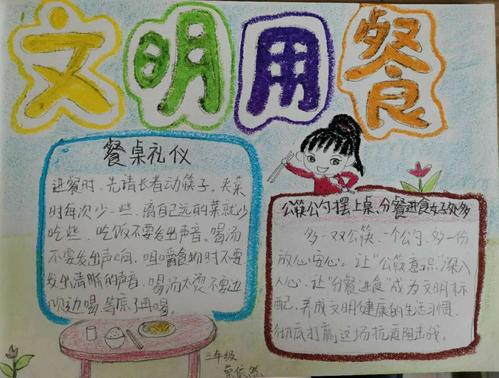 文明用餐
餐桌礼仪
进餐时，先请长者动筷子，夹菜
时每次少一些，离自己远的菜就少
吃些，吃饭不要发出声音。喝汤
不要发出声响，咀嚼食物时不要
发出清晰的声音，喝汤太烫不要边
吹边喝，等凉了再喝。
公筷公勺摆上桌，分餐进食好处多
多一双公筷，一个公勺，多一份
放心安心。让“公筷意识”深入
人心，让“分餐进食”成为文明标
配，养成文明健康的生活习惯，
彻底打赢这场抗疫阻击战。
三年级